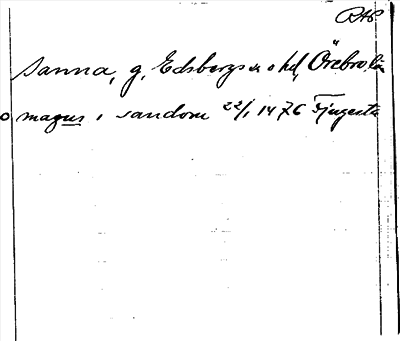 RAP
Sanna, g, Edsbergs sn o hd, Örebro län
magnus i sandom 22/1 1476 Fjugesta